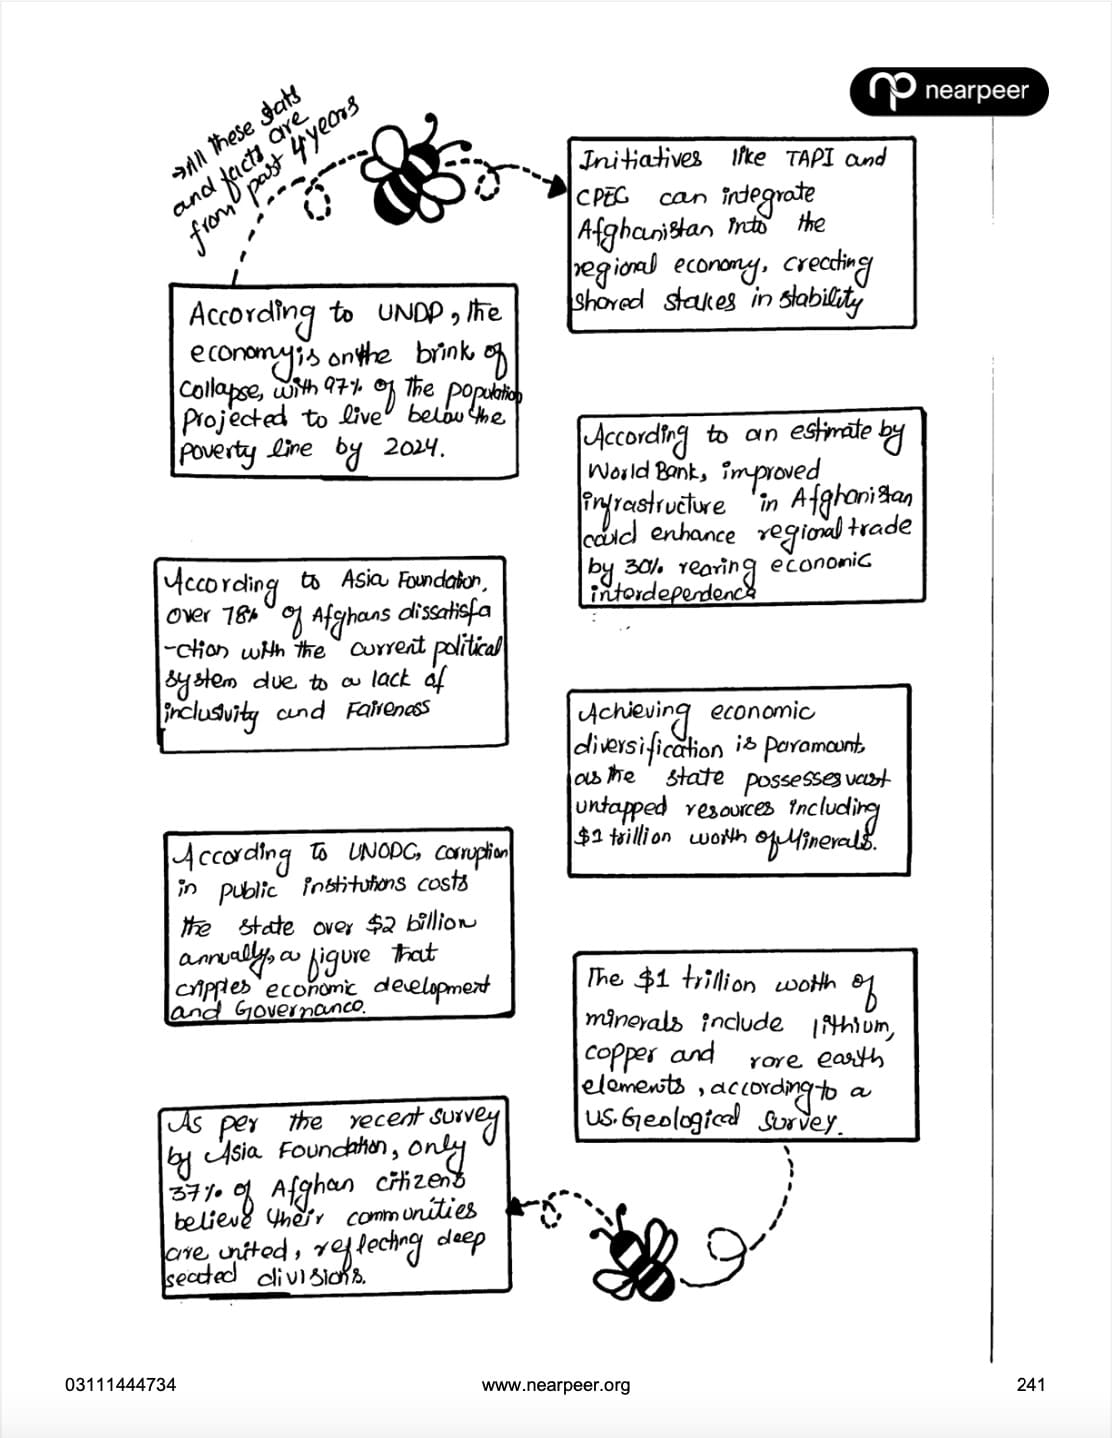 nearpeer
→All these stats
and facts are
from past 4 years
According to UNDP, the
economy is on the brink of
collapse, with 97% of the population
Projected to live below the
poverty line by 2024.
According to Asia Foundation,
over 78% of Afghans dissatisfa
-ction with the current political
system due to a lack of
inclusivity and Faireness
According To UNODC, corruption
in public institutions costs
the state over $2 billion
annually, a figure that
cripples economic development
and Governance.
As per the recent survey
by Asia Foundation, only
37% of Afghan citizens
believe their communities
are united, reflecting deep
seated divisions.
Initiatives like TAPI and
CPEC can integrate
Afghanistan into the
regional economy, creating
shared stakes in stability
According to an estimate by
World Bank, improved
infrastructure in Afghanistan
could enhance regional trade
by 30% rearing economic
interdependence
Achieving economic
diversification is paramount,
as the state possesses vast
untapped resources including
$1 trillion worth of Minerals.
The $1 trillion worth of
minerals include lithium,
copper and rare earth
elements, according to a
US. Geological Survey.
03111444734
www.nearpeer.org
241